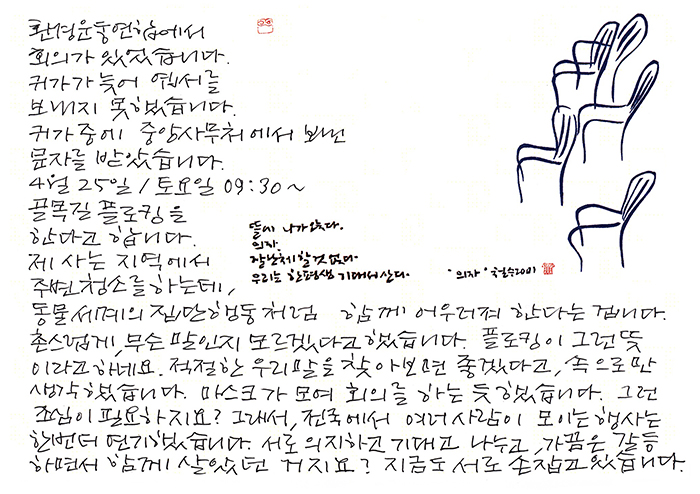 환경운동연합에서
회의가 있었습니다.
귀가가 늦어 엽서를
보내지 못했습니다.
귀가중에 중앙사무처에서 보낸
문자를 받았습니다.
4월 25일 / 토요일 09:30~
골목길 플로킹을
한다고 합니다.
제 사는 지역에서
주변청소를 하는데,
동물세계의 집단행동처럼 함께 어우러져 한다는 겁니다.
촌스럽게, 무슨 말인지 모르겠다고 했습니다. 플로킹이 그런 뜻
이라고 하네요. 적절한 우리말을 찾아보면 좋겠다고, 속으로만
생각했습니다. 마스크가 모여 회의를 하는 듯 했습니다. 그런
조심이 필요하지요? 그래서, 전국에서 여러사람이 모이는 행사는
한번 더 연기했습니다. 서로 의지하고 기대고 나누고, 가끔은 갈등
하면서 함께 살았던 거지요? 지금도 서로 손잡고 있습니다.
뜰에 나가 앉다.
의자.
잘난체 할 것 없다.
우리는 한평생 기대서 산다.
"의자" 철수 2001